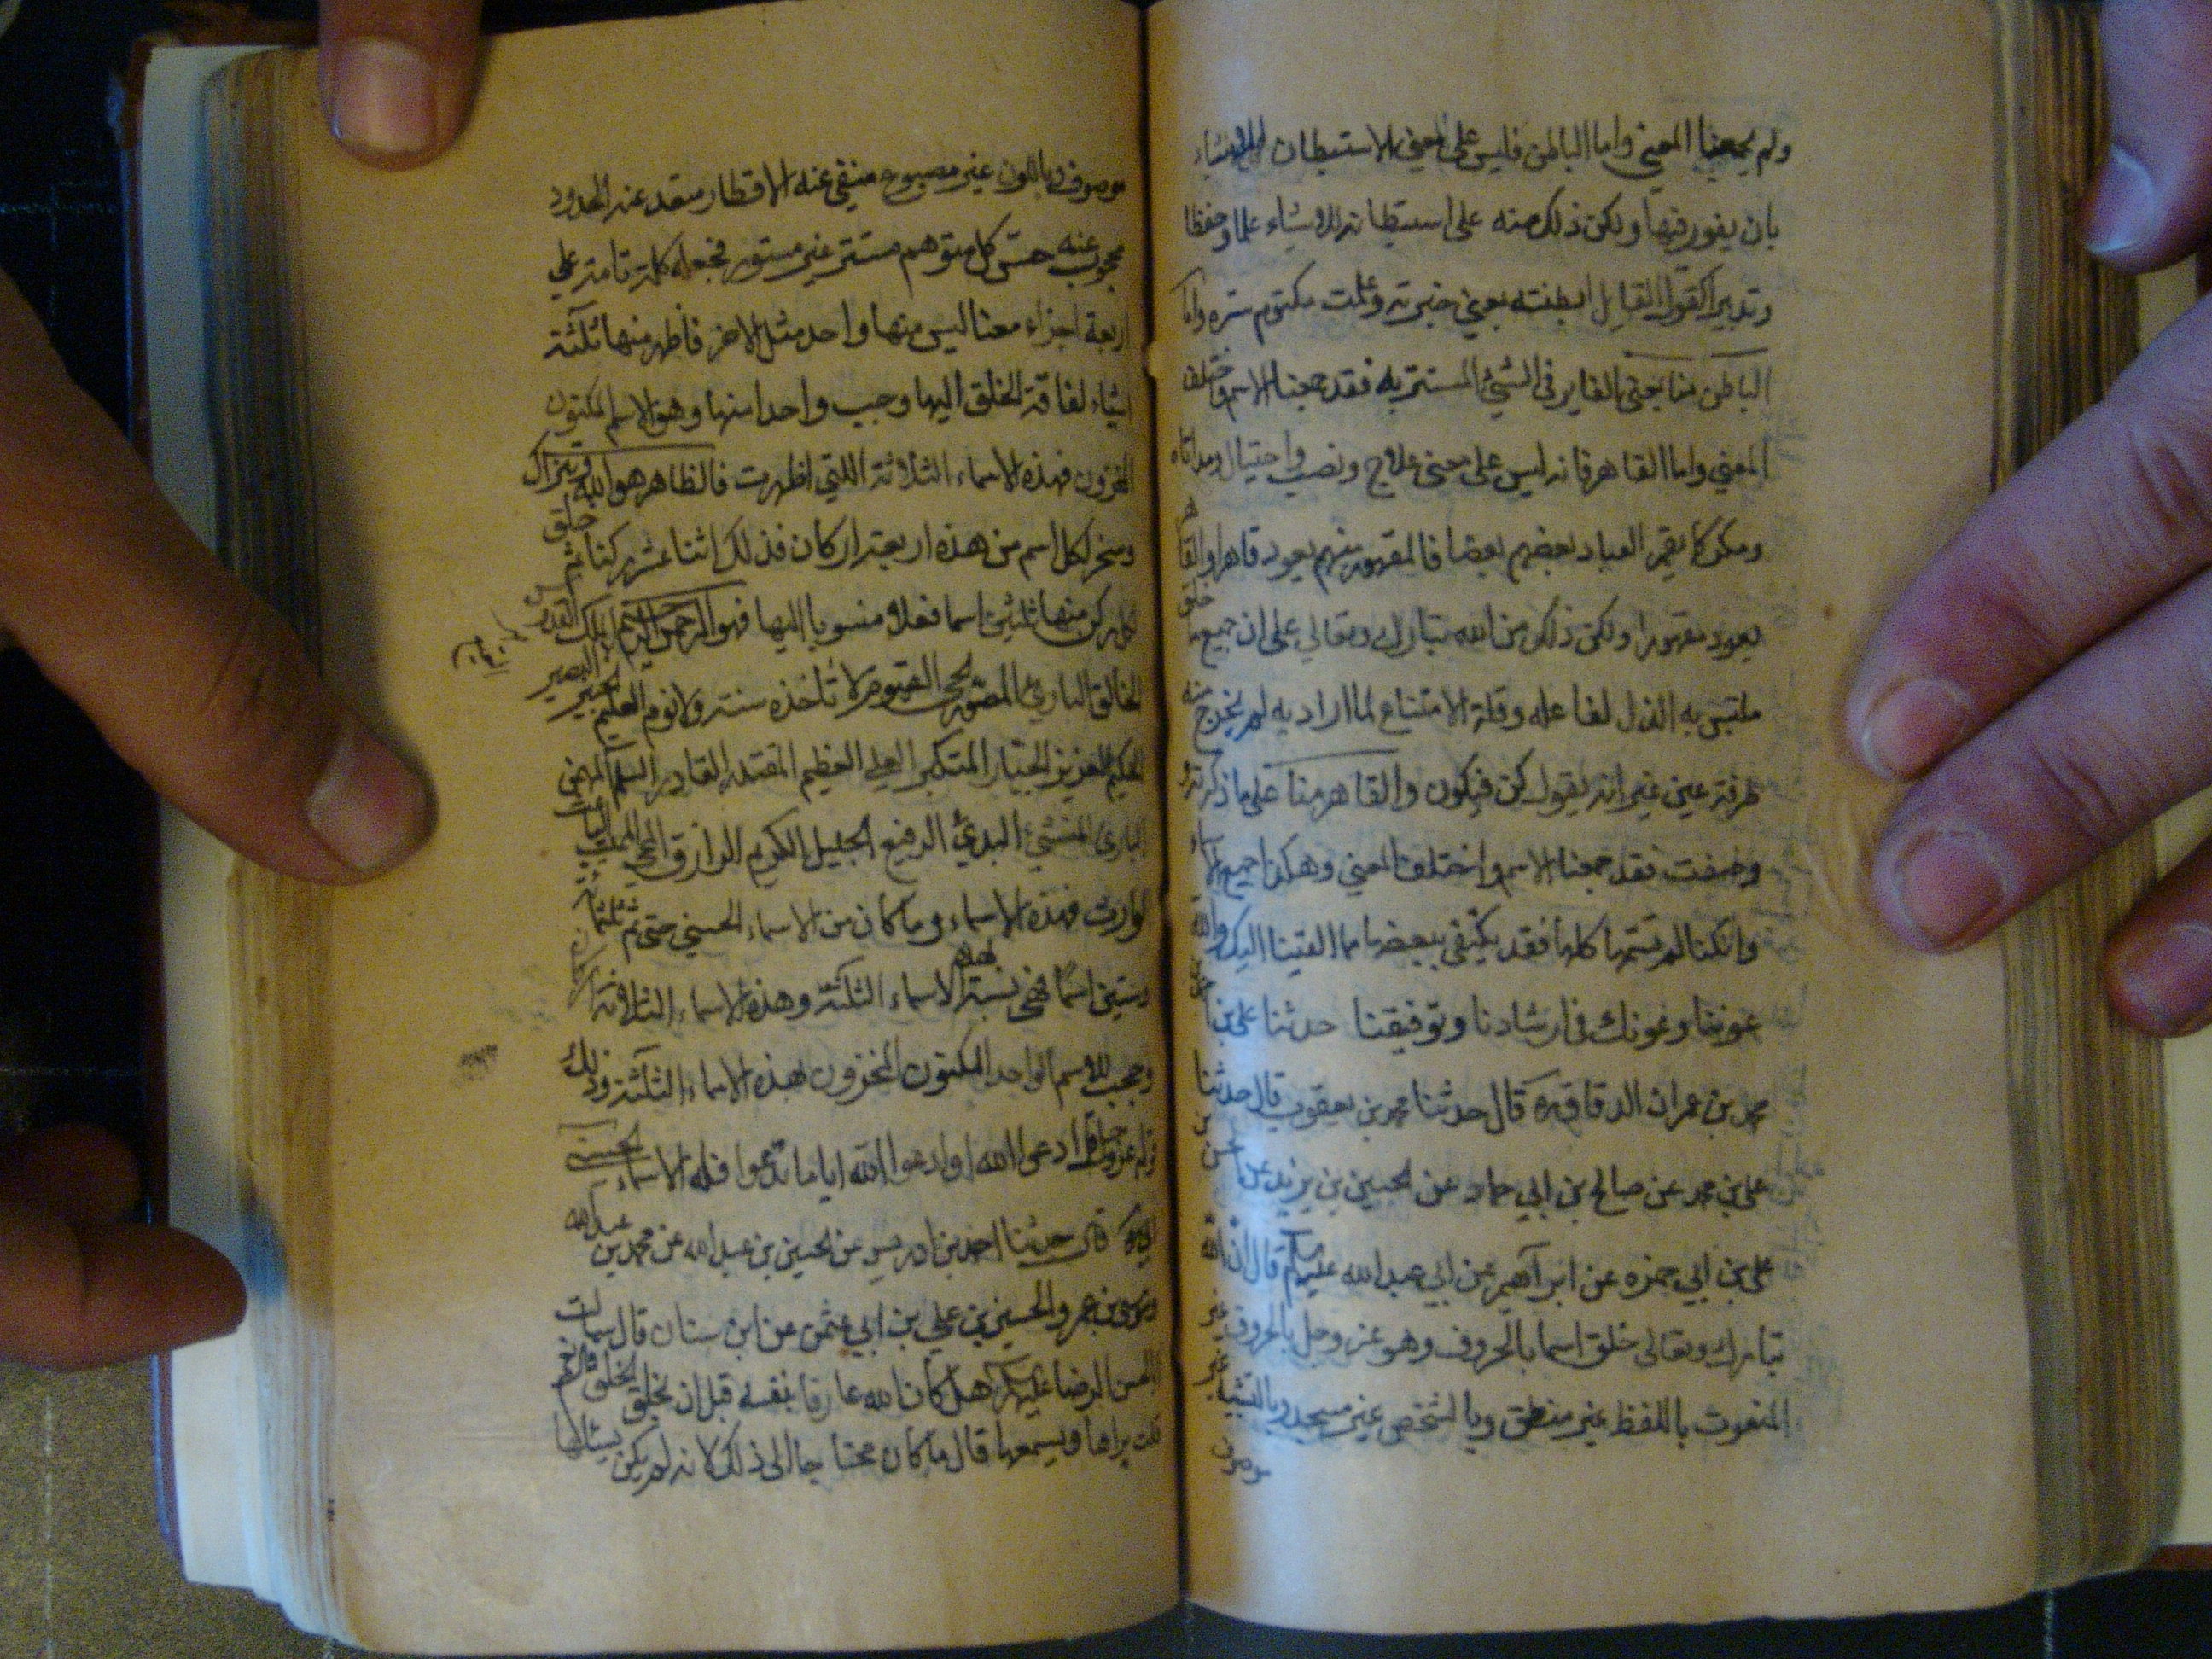 ولم يجمعنا المعنى واما الباطن فليس على معنى الاستبطان للاشياء
بان يغور فيها ولكن ذلك منه على استبطانه للاشياء علما وحفظا
وتدبيرا كقول القايل ابطنته يعني خبرته وعلمت مكتوم ستره واما
الباطن منا بمعنى الغاير في الشيء المستتر به فقد جمعنا الاسم واختلف
المعني واما القاهر فانه ليس على معنى علاج ونصب واحتيال ومداراة
ومكر كما يقهر العباد بعضهم بعضا فالمقهور منهم يعود قاهرا والقاهر
يعود مقهورا ولكن ذلك من الله تبارك وتعالى على ان جميع ما خلق
ملتبس به الذل لفاعله وقلة الامتناع لما اراد به لم يخرج منه
طرفة عين غير انه يقول كن فيكون والقاهر منا على ما ذكرته و
وصفت فقد جمعنا الاسم واختلف المعنى وهكذا جميع الاسماء
وان كنا لم نسمها كلها فقد يكتفى ببعضها مما القينا اليك والله
عوننا وعونك في ارشادنا وتوفيقنا حدثنا علي بن
محمد بن عمران الدقاق ره قال حدثنا محمد بن يعقوب قال حدثنا
علي بن محمد عن صالح بن ابي حماد عن الحسين بن يزيد عن الحسن بن
علي بن ابي حمزه عن ابراهيم عن ابي عبد الله عليه السلم قال ان الله
تبارك وتعالى خلق اسما بالحروف وهو عز وجل بالحروف غير
المنعوت باللفظ غير منطق وبالشخص غير مجسد وبالتشبيه غير
موصوف
موصوف وباللون غير مصبوغ منفي عنه الاقطار مبعد عنه الحدود
محجوب عنه حس كل متوهم مستتر غير مستور فجعله كلمة تامة على
اربعة اجزاء معا ليس منها واحد مثل الاخر فاظهر منها ثلثة
اشياء لفاقة الخلق اليها وحجب واحدا منها وهو الاسم المكتون
المخزون فهذه الاسماء الثلاثة اللتي اظهرت فالظاهر هو الله
وسخر لكل اسم من هذه اربعة اركان فذلك اثنا عشر ركنا ثم خلق
لكل ركن منها ثلثين اسما فعلا منسوبا اليها فهو الرحمن الرحيم الملك القدوس
الخالق البارئ المصور الحي القيوم لا تاخذه سنة ولا نوم العليم الخبير البصير
الحكيم العزيز الجبار المتكبر العلي العظيم المقتدر القادر السلم المهيمن
البارئ المنشئ البديع الرفيع الجليل الكريم الرازق المحيي المميت الباعث
الوارث فهذه الاسماء وما كان من الاسماء الحسنى حتى تتم ثلثمائة
وستين اسما فهي نسبة لهذه الاسماء الثلثة وهذه الاسماء الثلاثة اركان
وحجب للاسم الواحد المكتون المخزون بهذه الاسماء الثلثة وذلك
قوله عز وجل قل ادعوا الله او ادعوا الله اياما تدعوا فله الاسماء الحسنى
قال حدثنا احمد بن ادريس عن الحسين بن عبد الله عن محمد بن عبد الله
وموسى بن عمر والحسين بن علي بن ابي عثمن عن ابن سنان قال سالت
الحسن الرضا عليه السلم هل كان الله عارفا بنفسه قبل ان يخلق الخلق قال نعم
قلت يراها ويسمعها قال ما كان محتاجا الى ذلك لانه لم يكن يسئالها